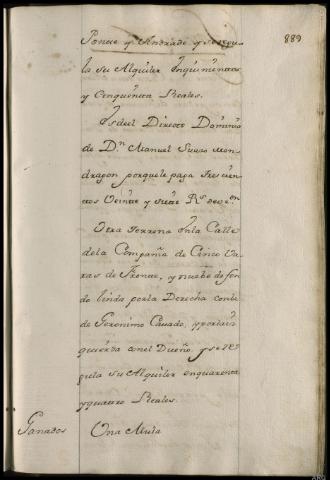 889
Ponze y Andrade y se regu-
la su Alquiler en quinientos
y cinquenta Reales.
Es del Directo Dominio
de Dn. Manuel Suarez Mon-
dragon porque le paga trescien-
tos veinte y siete Rs. de von.
Otra Terrena en la Calle
de la Compañia de Cinco Va-
ras de Frente, y nuebe de fon-
do linda por la Derecha con la
de Geronimo Casado, y por la iz-
quierda con el Dueño, y se re-
gula su Alquiler en quarenta
y quatro Reales.
Ganados Una Mula